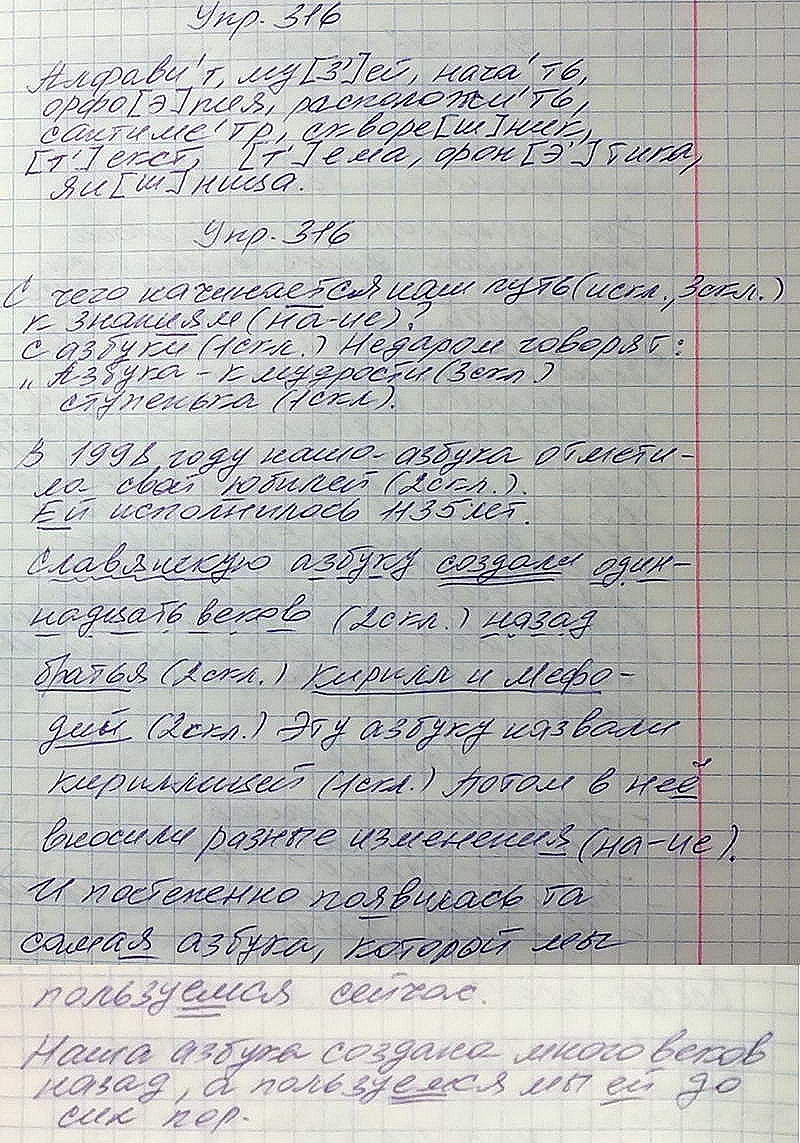 Упр. 316
Алфави'т, му[з']ей, нача'ть,
орфо[э]пия, расположи'ть,
сантиме'тр, скворе[ш]ник,
[т']екст, [т']ема, фон[э']тика,
яи[ш]ница.
Упр. 316
С чего начинается наш путь (искл., 3скл.)
к знаниям (на-ие)?
С азбуки (1скл.) Недаром говорят:
„Азбука - к мудрости (3скл.)
ступенька (1скл).
В 1998 году наша азбука отмети-
ла свой юбилей (2скл.).
Ей исполнилось 1135 лет.
Славянскую азбуку создали один-
надцать веков (2скл.) назад
братья (2скл.) Кирилл и Мефо-
дий (2скл.) Эту азбуку назвали
кириллицей (1скл.) Потом в неё
вносили разные изменения (на-ие).
И постепенно появилась та
самая азбука, который мы
пользуемся сейчас.
Наша азбука создана много веков
назад, а пользуемся мы ей до
сих пор.